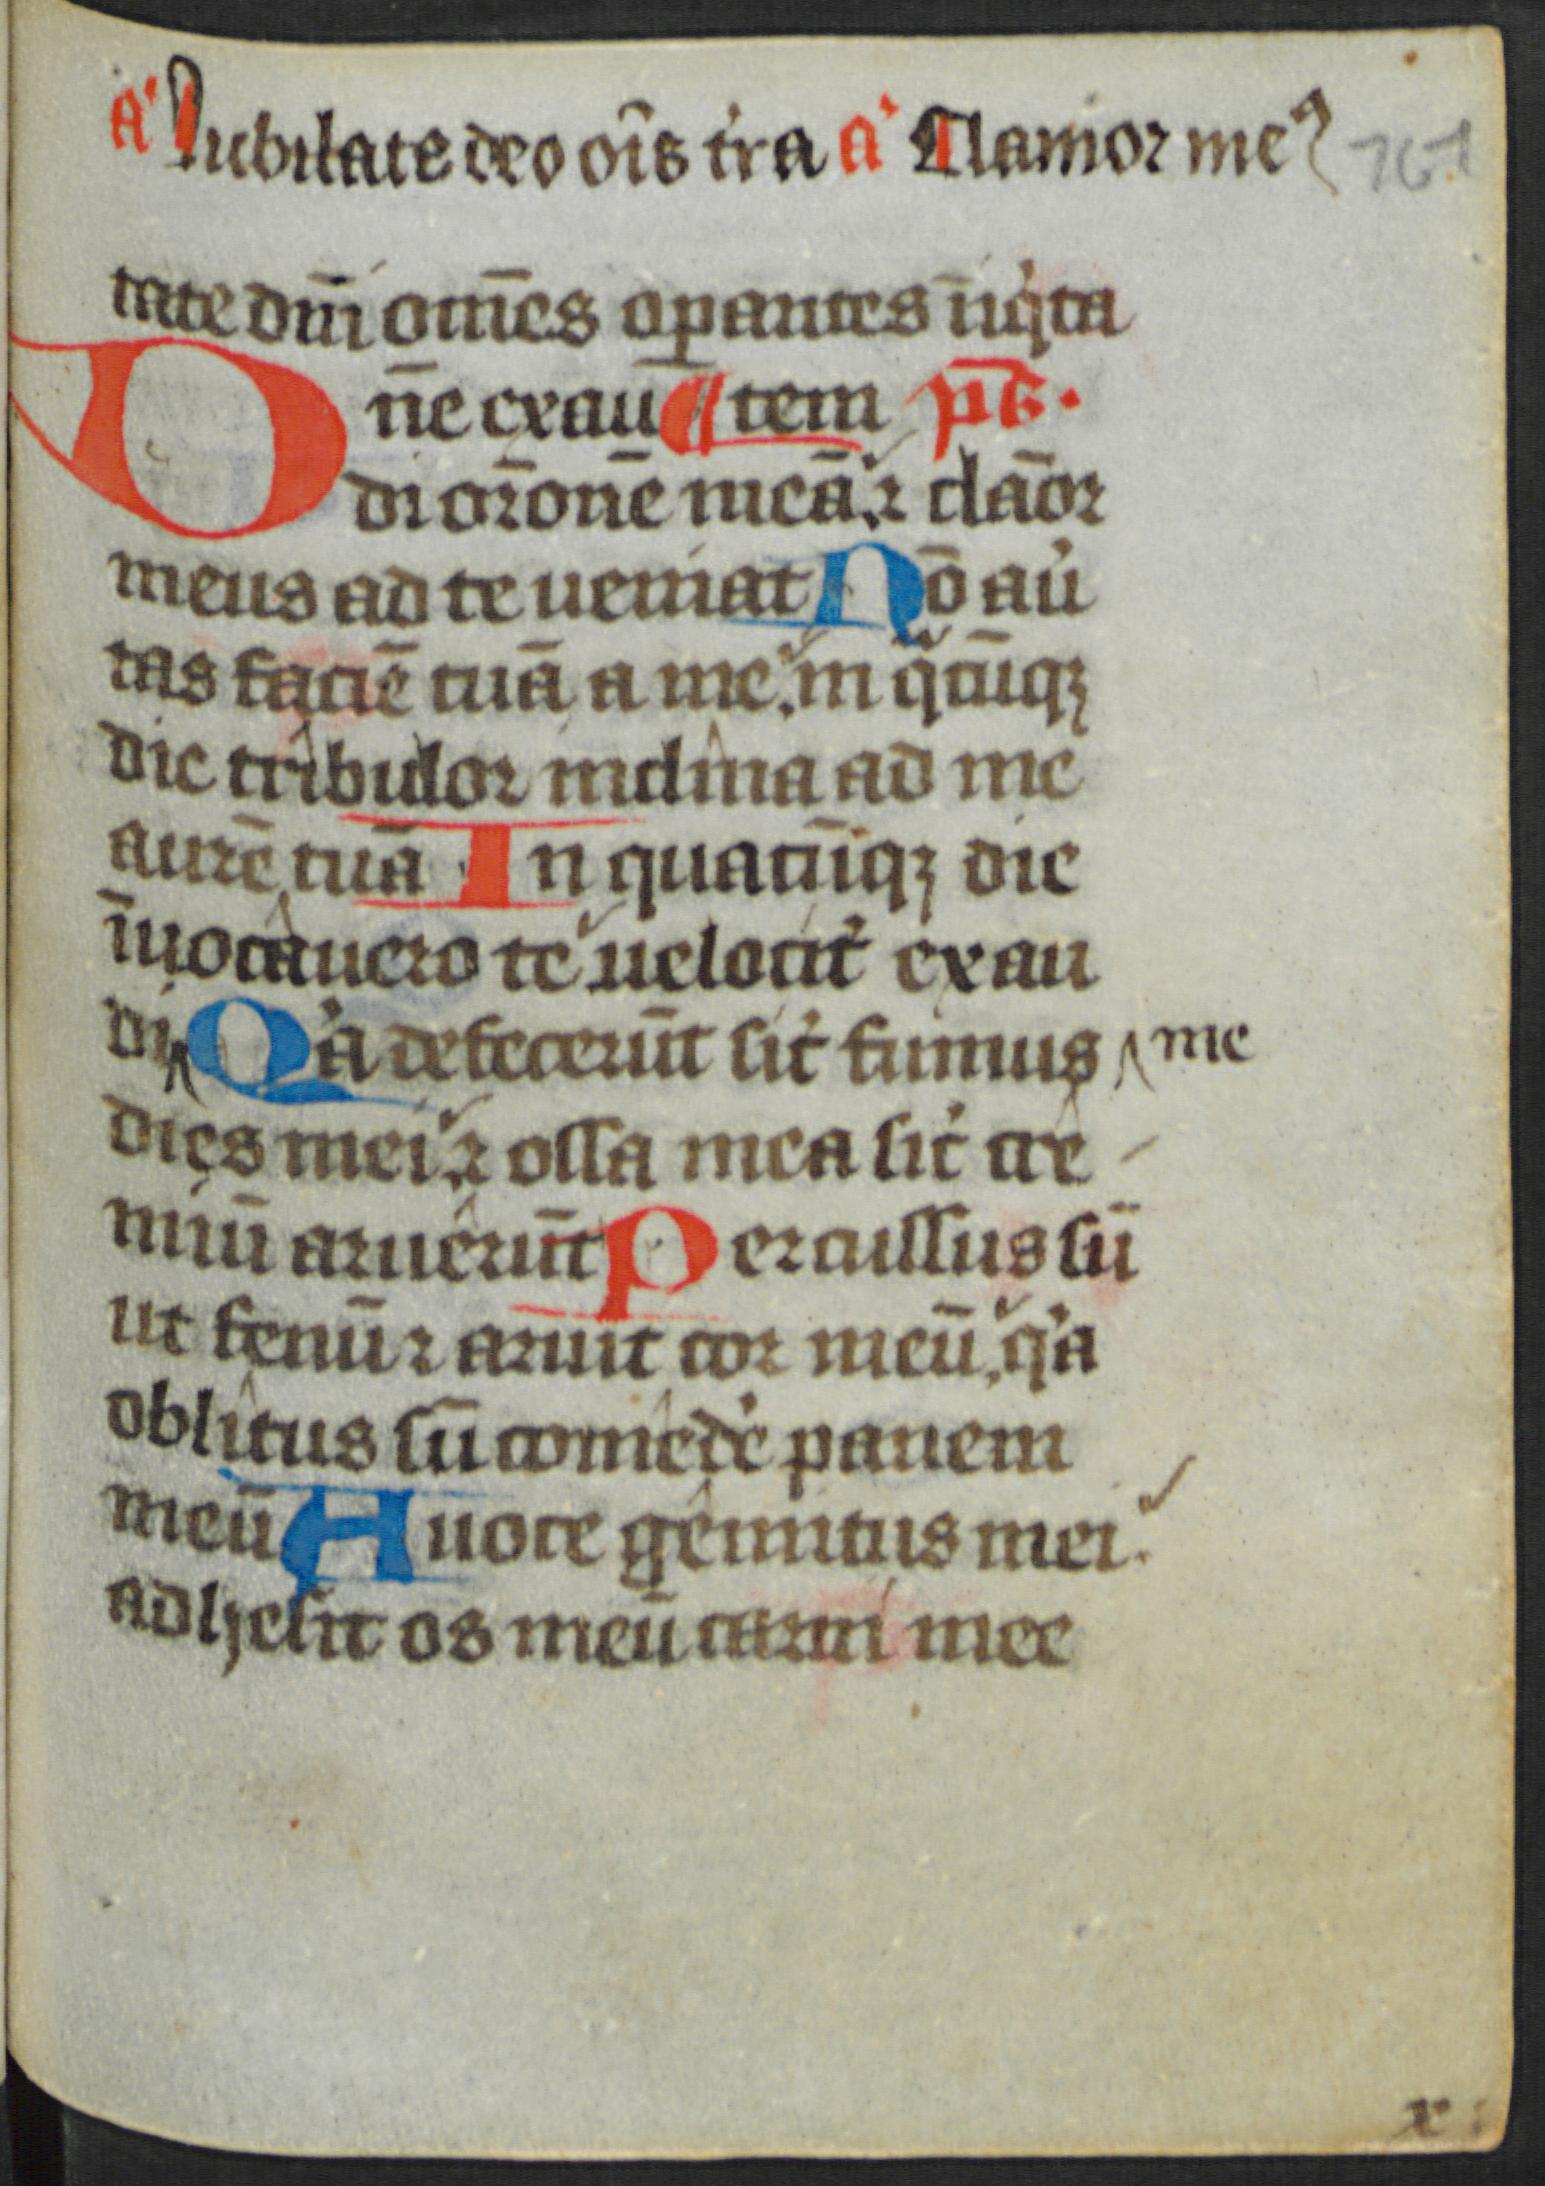 A' Iubilate deo oīs t'ra A' Clamor meꝰ 161
tate dn̄i om̄es oꝑantes īiq'ta
Dn̄e exau ¶ tem p̄s.
di or̄onē meā.⁊ clāor
meus ad te ueniat Nō au'
tas faciē tuā a me. in q̄cūqꝫ
die tribulor inclina ad me
aurē tuā In quacūqꝫ die
īuocauero te uelocit' exau
di Q'a defecerūt sic' fumus me
dies mei.⁊ ossa mea sic' cre
miū aruerūt Percussus sū
ut fenū ⁊ aruit cor meū.q'a
oblitus sū comed'e panem
meū A uoce gemitus mei.
adhesit os meū carni mee